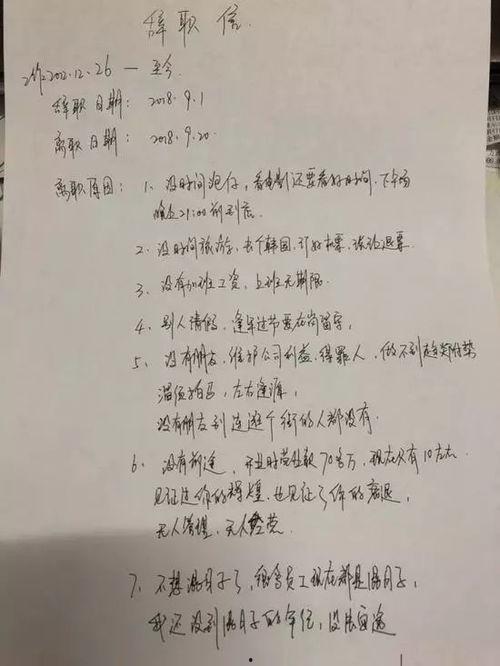 辞职信
工作2012.12.26 — 至今
辞职日期: 2018.9.1
离职日期: 2018.9.20
离职原因: 1. 没时间泡仔,看电影还要看好时间,下午场
晚上21:00前到店
2. 没时间旅游,去个韩国,订好机票,
退票
3. 没有加班工资,上班无期限
4. 别人请假,逢年过节要在岗留守,
5. 没有朋友,维护公司利益,得罪人,做不到趋炎附势
溜须拍马,左右逢源,
没有朋友到连逛个街的人都没有.
6. 没有前途,开业时营业款70多万,现在只有10左右
见证过你的辉煌,也见证了你的衰退,
无人管理,无人经营.
7. 不想混日子了,很多员工现在都是混日子,
我还没到混日子的年纪,没法